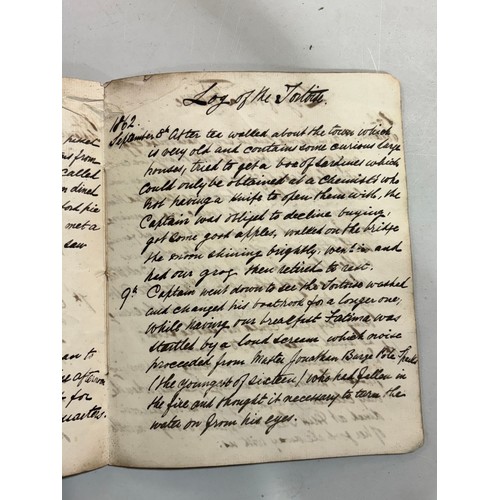 Log of the Tortoise.
1862.
September 8th After tea walked about the town which
is very old and contains some curious large
houses, tried to get a box of sardines which
could only be obtained at a Chemists who
not having a knife to open them with, the
Captain was obliged to decline buying,
got some good apples, walked on the bridge
the moon shining brightly, went in and
had our grog, then retired to rest.
9th Captain went down to see the Tortoise washed
and changed his boathook for a longer one,
while having our breakfast Fatima was
startled by a loud scream which noise
proceeded from Master Jonathan Barge Pole
(the youngest of sixteen) who had fallen in
the fire and thought it necessary to turn the
water on from his eyes.
pocket
from
called
dined
pie
met a
saw
to
for